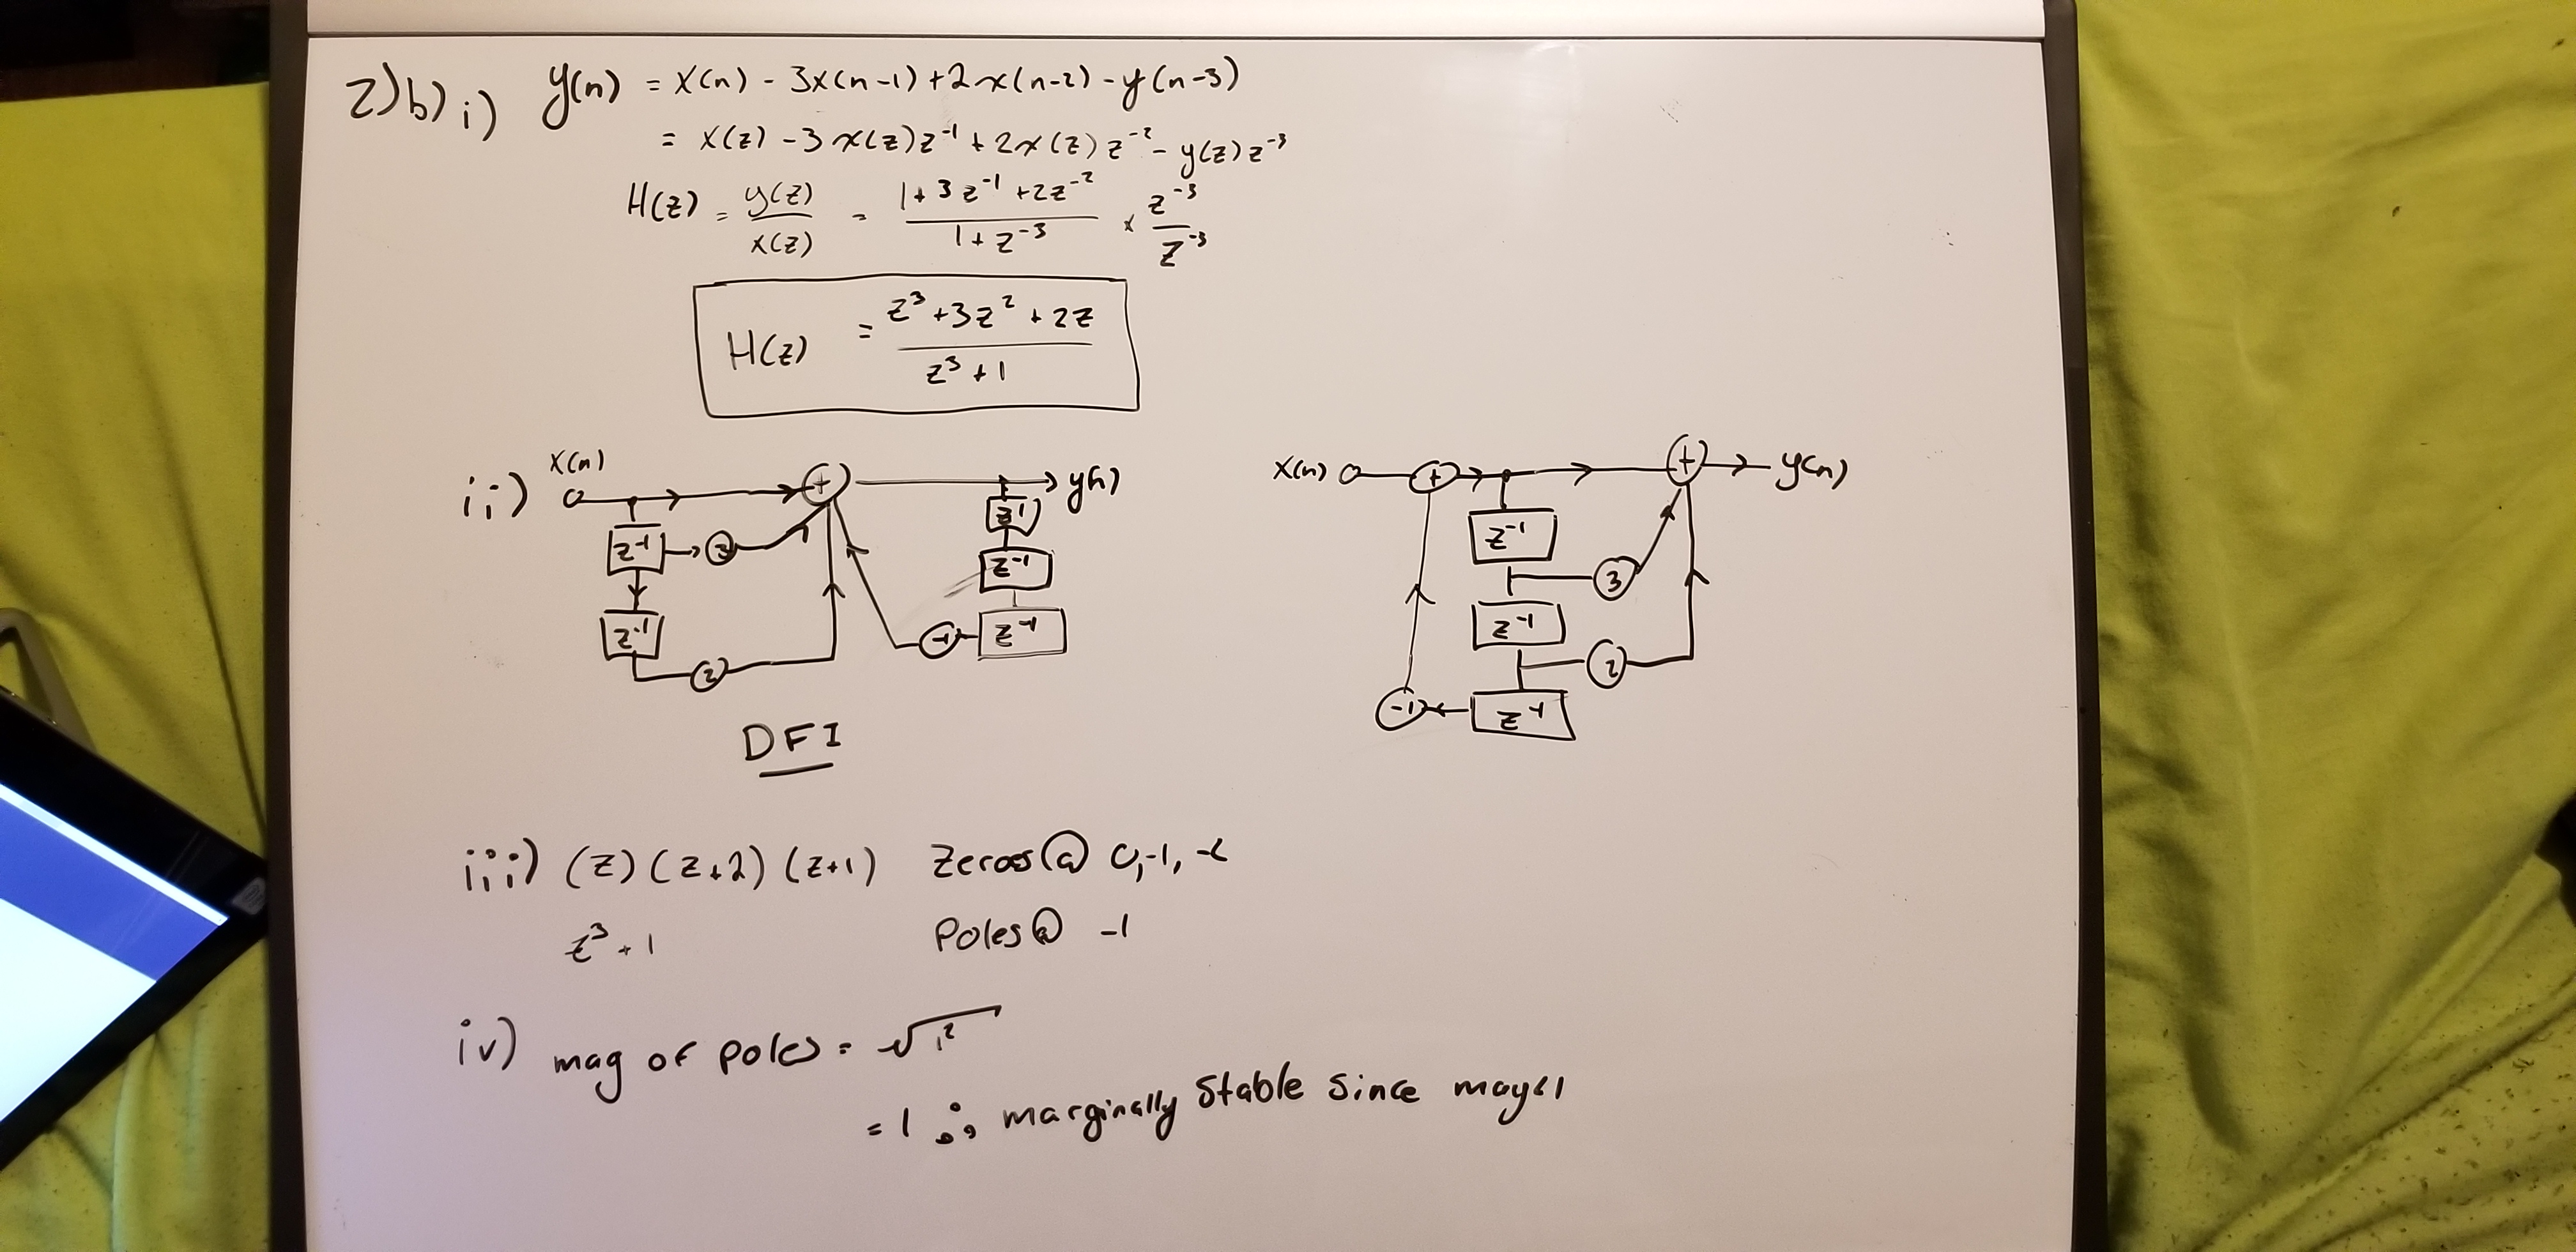 2) b) i) y(n) = x(n) - 3x(n-1) + 2x(n-2) - y(n-3)
= x(z) - 3x(z)z⁻¹ + 2x(z)z⁻² - y(z)z⁻³
H(z) = y(z)/x(z) = (1 + 3z⁻¹ + 2z⁻²)/(1 + z⁻³) × z⁻³/z⁻³
H(z) = (z³ + 3z² + 2z)/(z³ + 1)
ii) x(n) + y(n)
z⁻¹ 3 z⁻¹
z⁻¹ 2 z⁻¹
-1 z⁻¹
DFI
x(n) + + y(n)
z⁻¹ 3
z⁻¹ 2
-1 z⁻¹
iii) (z)(z+2)(z+1) Zeros@ 0,-1,-2
z³ + 1 Poles@ -1
iv) mag of poles = √1²
= 1 ∴ marginally Stable Since mag≤1